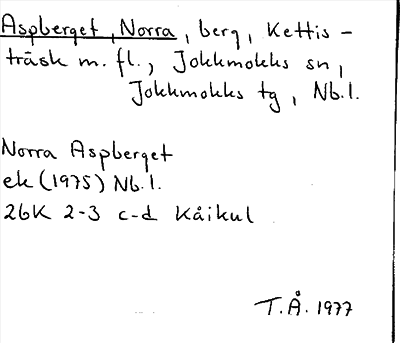 Aspberget, Norra, berg, Kettis-
träsk m. fl., Jokkmokks sn,
Jokkmokks tg, Nb.l.
Norra Aspberget
ek (1975) Nb.l.
26K 2-3 c-d Kåikul
T.Å. 1977